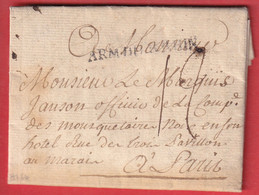 A Monsieur
ARM. DU
Monsieur Le Marquis
Janson officier de La Comp.
des mousquetaire Noir en son
hotel Rue des trois Pavillon
au marais
A Paris